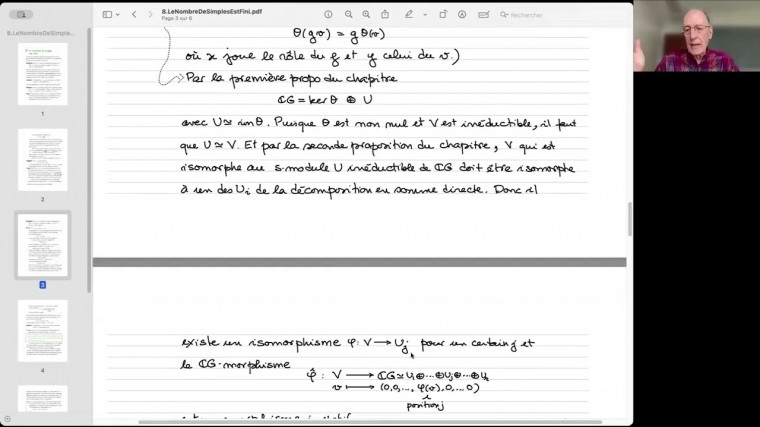 8.LeNombreDeSimplesEstFini.pdf
Page 3 sur 6
Rechercher
8.LeNombreDeSimplesEstFini...
1
2
3
4
θ(gv) = g θ(v)
où x joue le rôle du g et y celui du v.)
Par la première propo du chapitre
ℂG = ker θ ⊕ U
avec U ≃ im θ. Puisque θ est non nul et V est irréductible, il faut
que U ≃ V. Et par la seconde proposition du chapitre, V qui est
isomorphe au s-module U irréductible de ℂG doit être isomorphe
à un des Ui de la décomposition en somme directe. Donc il
existe un isomorphisme φ: V → Uj pour un certain j et
le ℂG-morphisme
φ̂ : V → ℂG ≃ U1 ⊕ ... ⊕ Uj ⊕ ... ⊕ Ut
v ↦ (0,0,..., φ(v), 0,...0)
position j